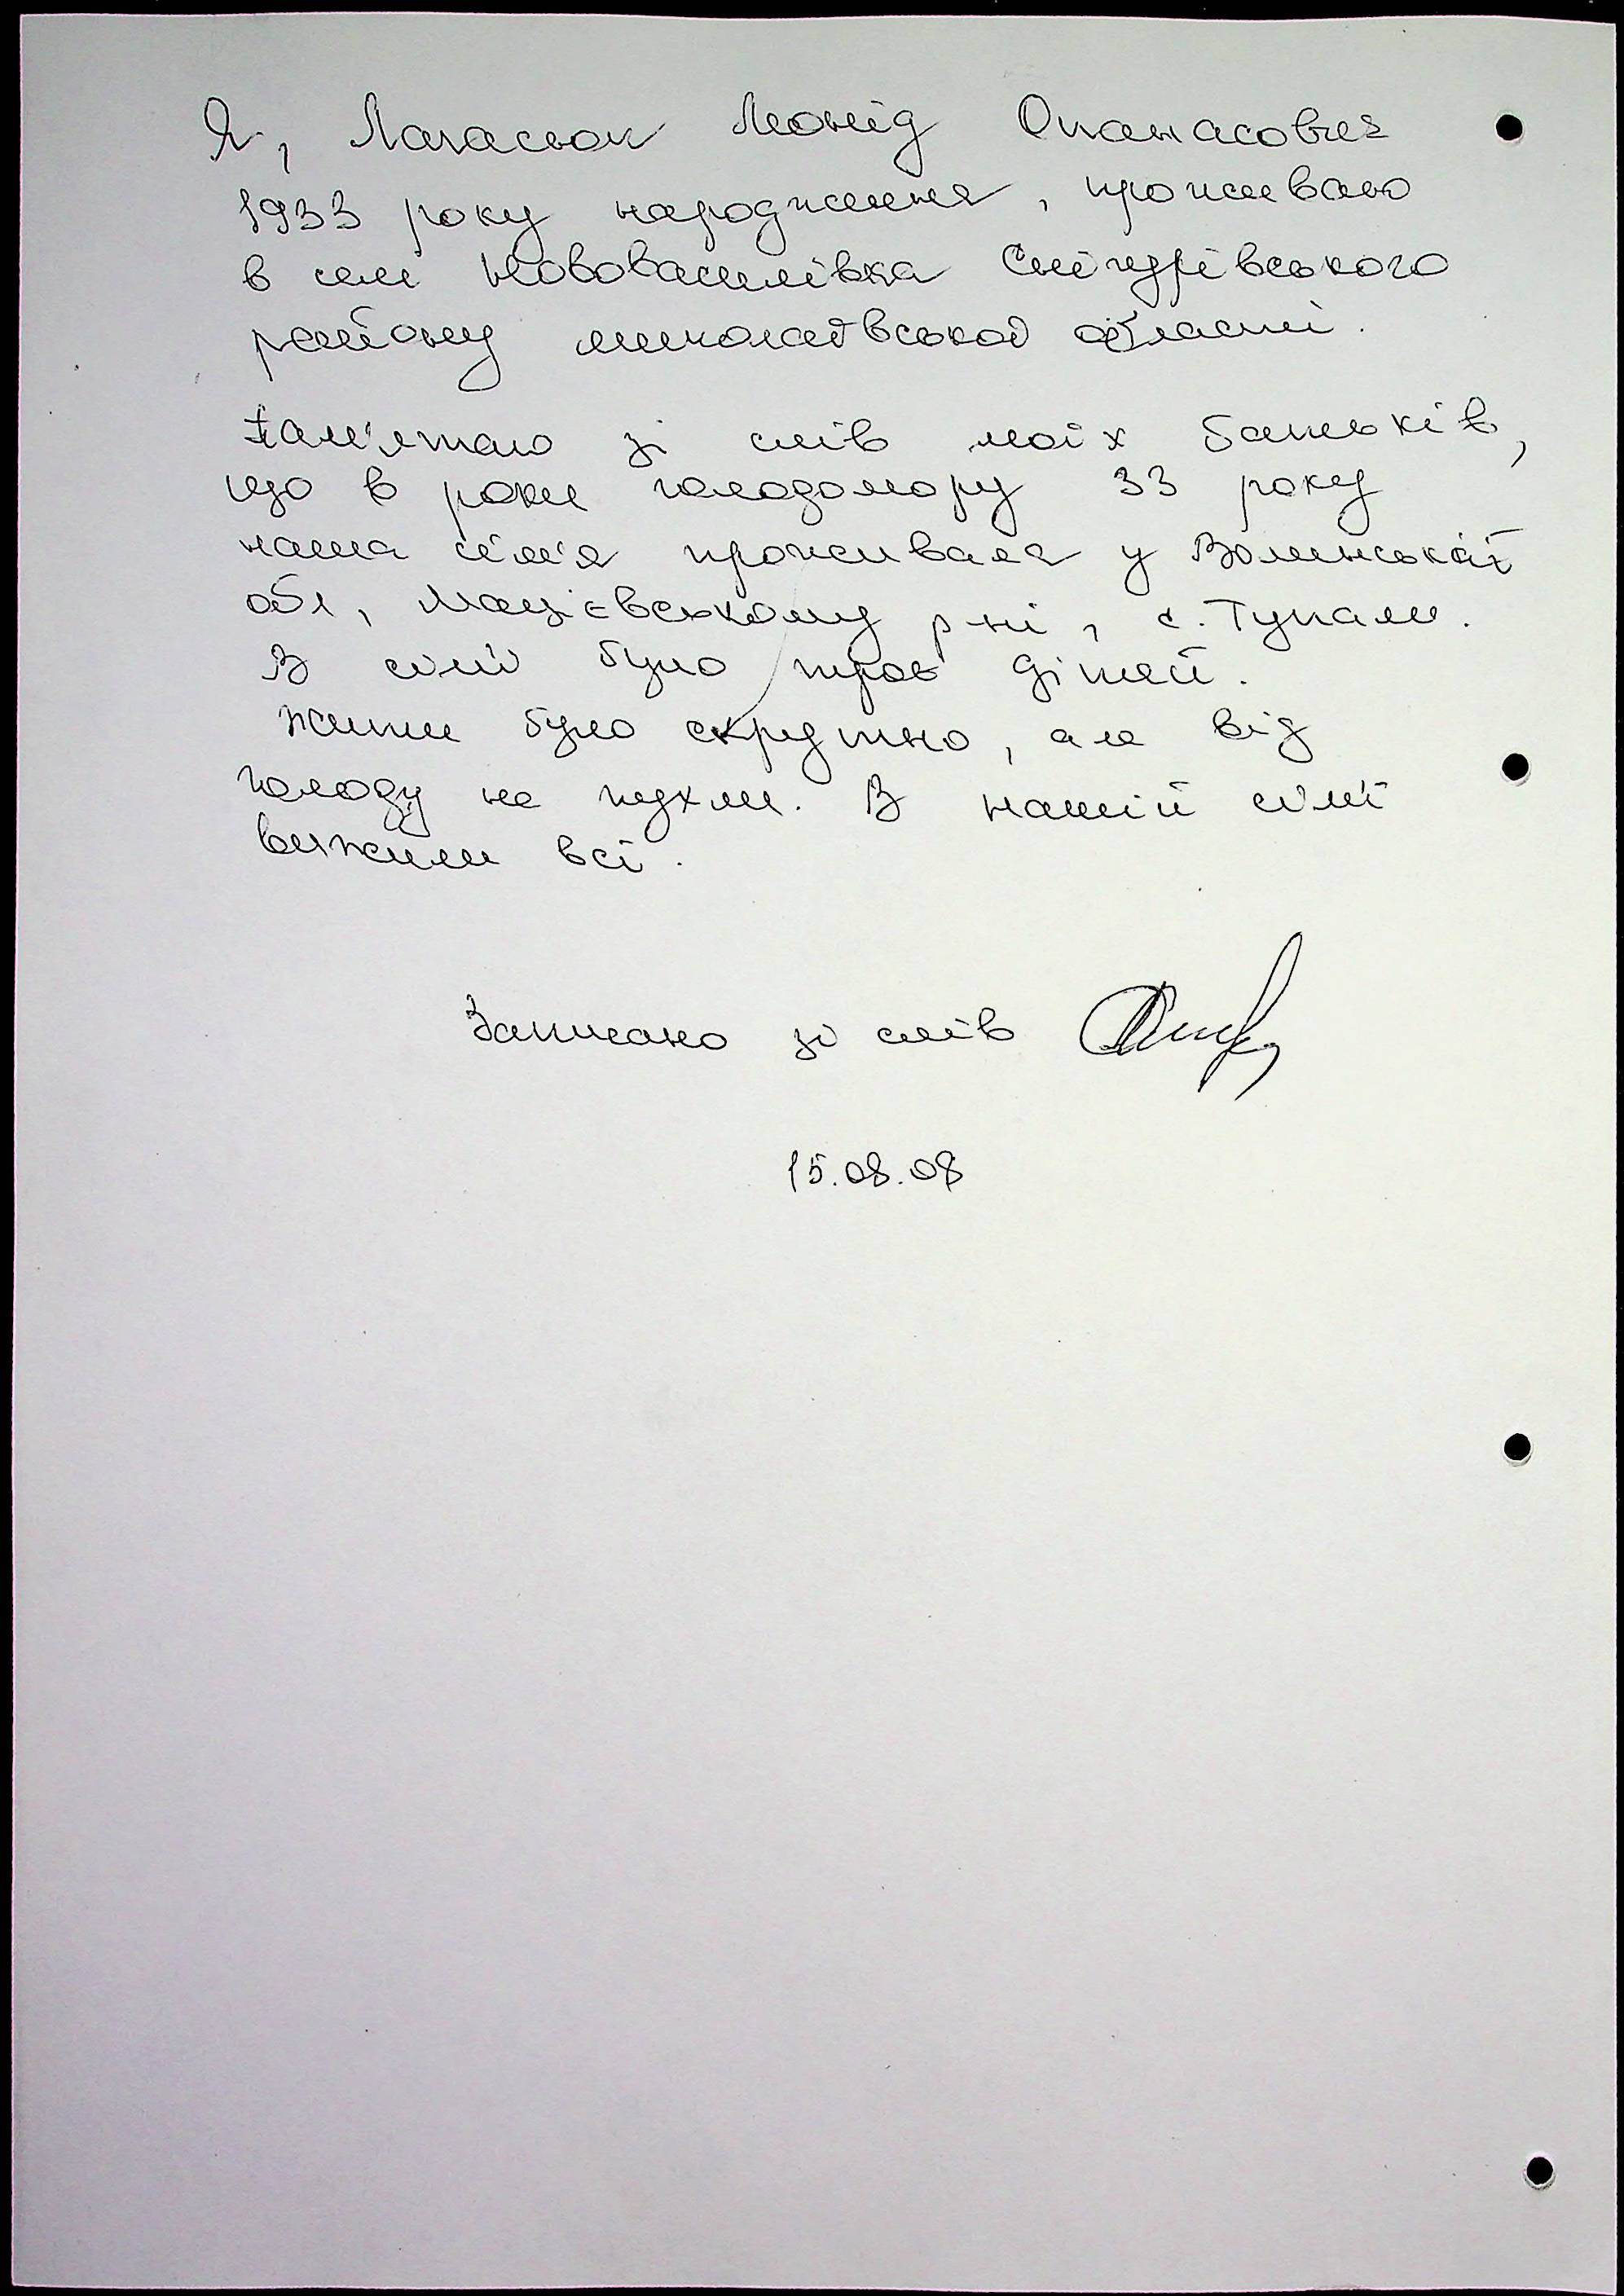 Я, Леонід Опанасович
1933 року народження, проживаю
в селі Нововасилівка Снігурівського
району миколаївської області.
Пам'ятаю зі слів моїх батьків,
що в роки голодомору 33 року
наша сім'я проживала у Волинській
обл, Мацієвському р-ні, с. Тупали.
В сім'ї було троє дітей.
Жити було скрутно, але від
голоду не пухли. В нашій сім'ї
вижили всі.
Записано зі слів
15.08.08